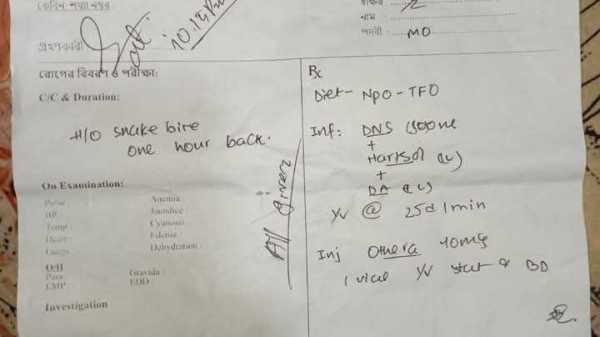 কেবিন/শয্যা নম্বর
গ্রহণকারী
10.15
নাম
পদবী : MO
রোগের বিবরণ ও পরীক্ষা:
C/C & Duration:
H/O snake bite
one hour back.
On Examination:
Pulse
Anemia
BP
Jaundice
Temp
Cyanosis
Heart
Edema
Lungs
Dehydration
O/H
Para
Gravida
LMP
EDD
Investigation
All given
Rx
Diet - NPO - TFO
Inf: DNS
+
Hartsol
+
DA
@ 25d/min
Inj 40mg
1 vial stat & BD